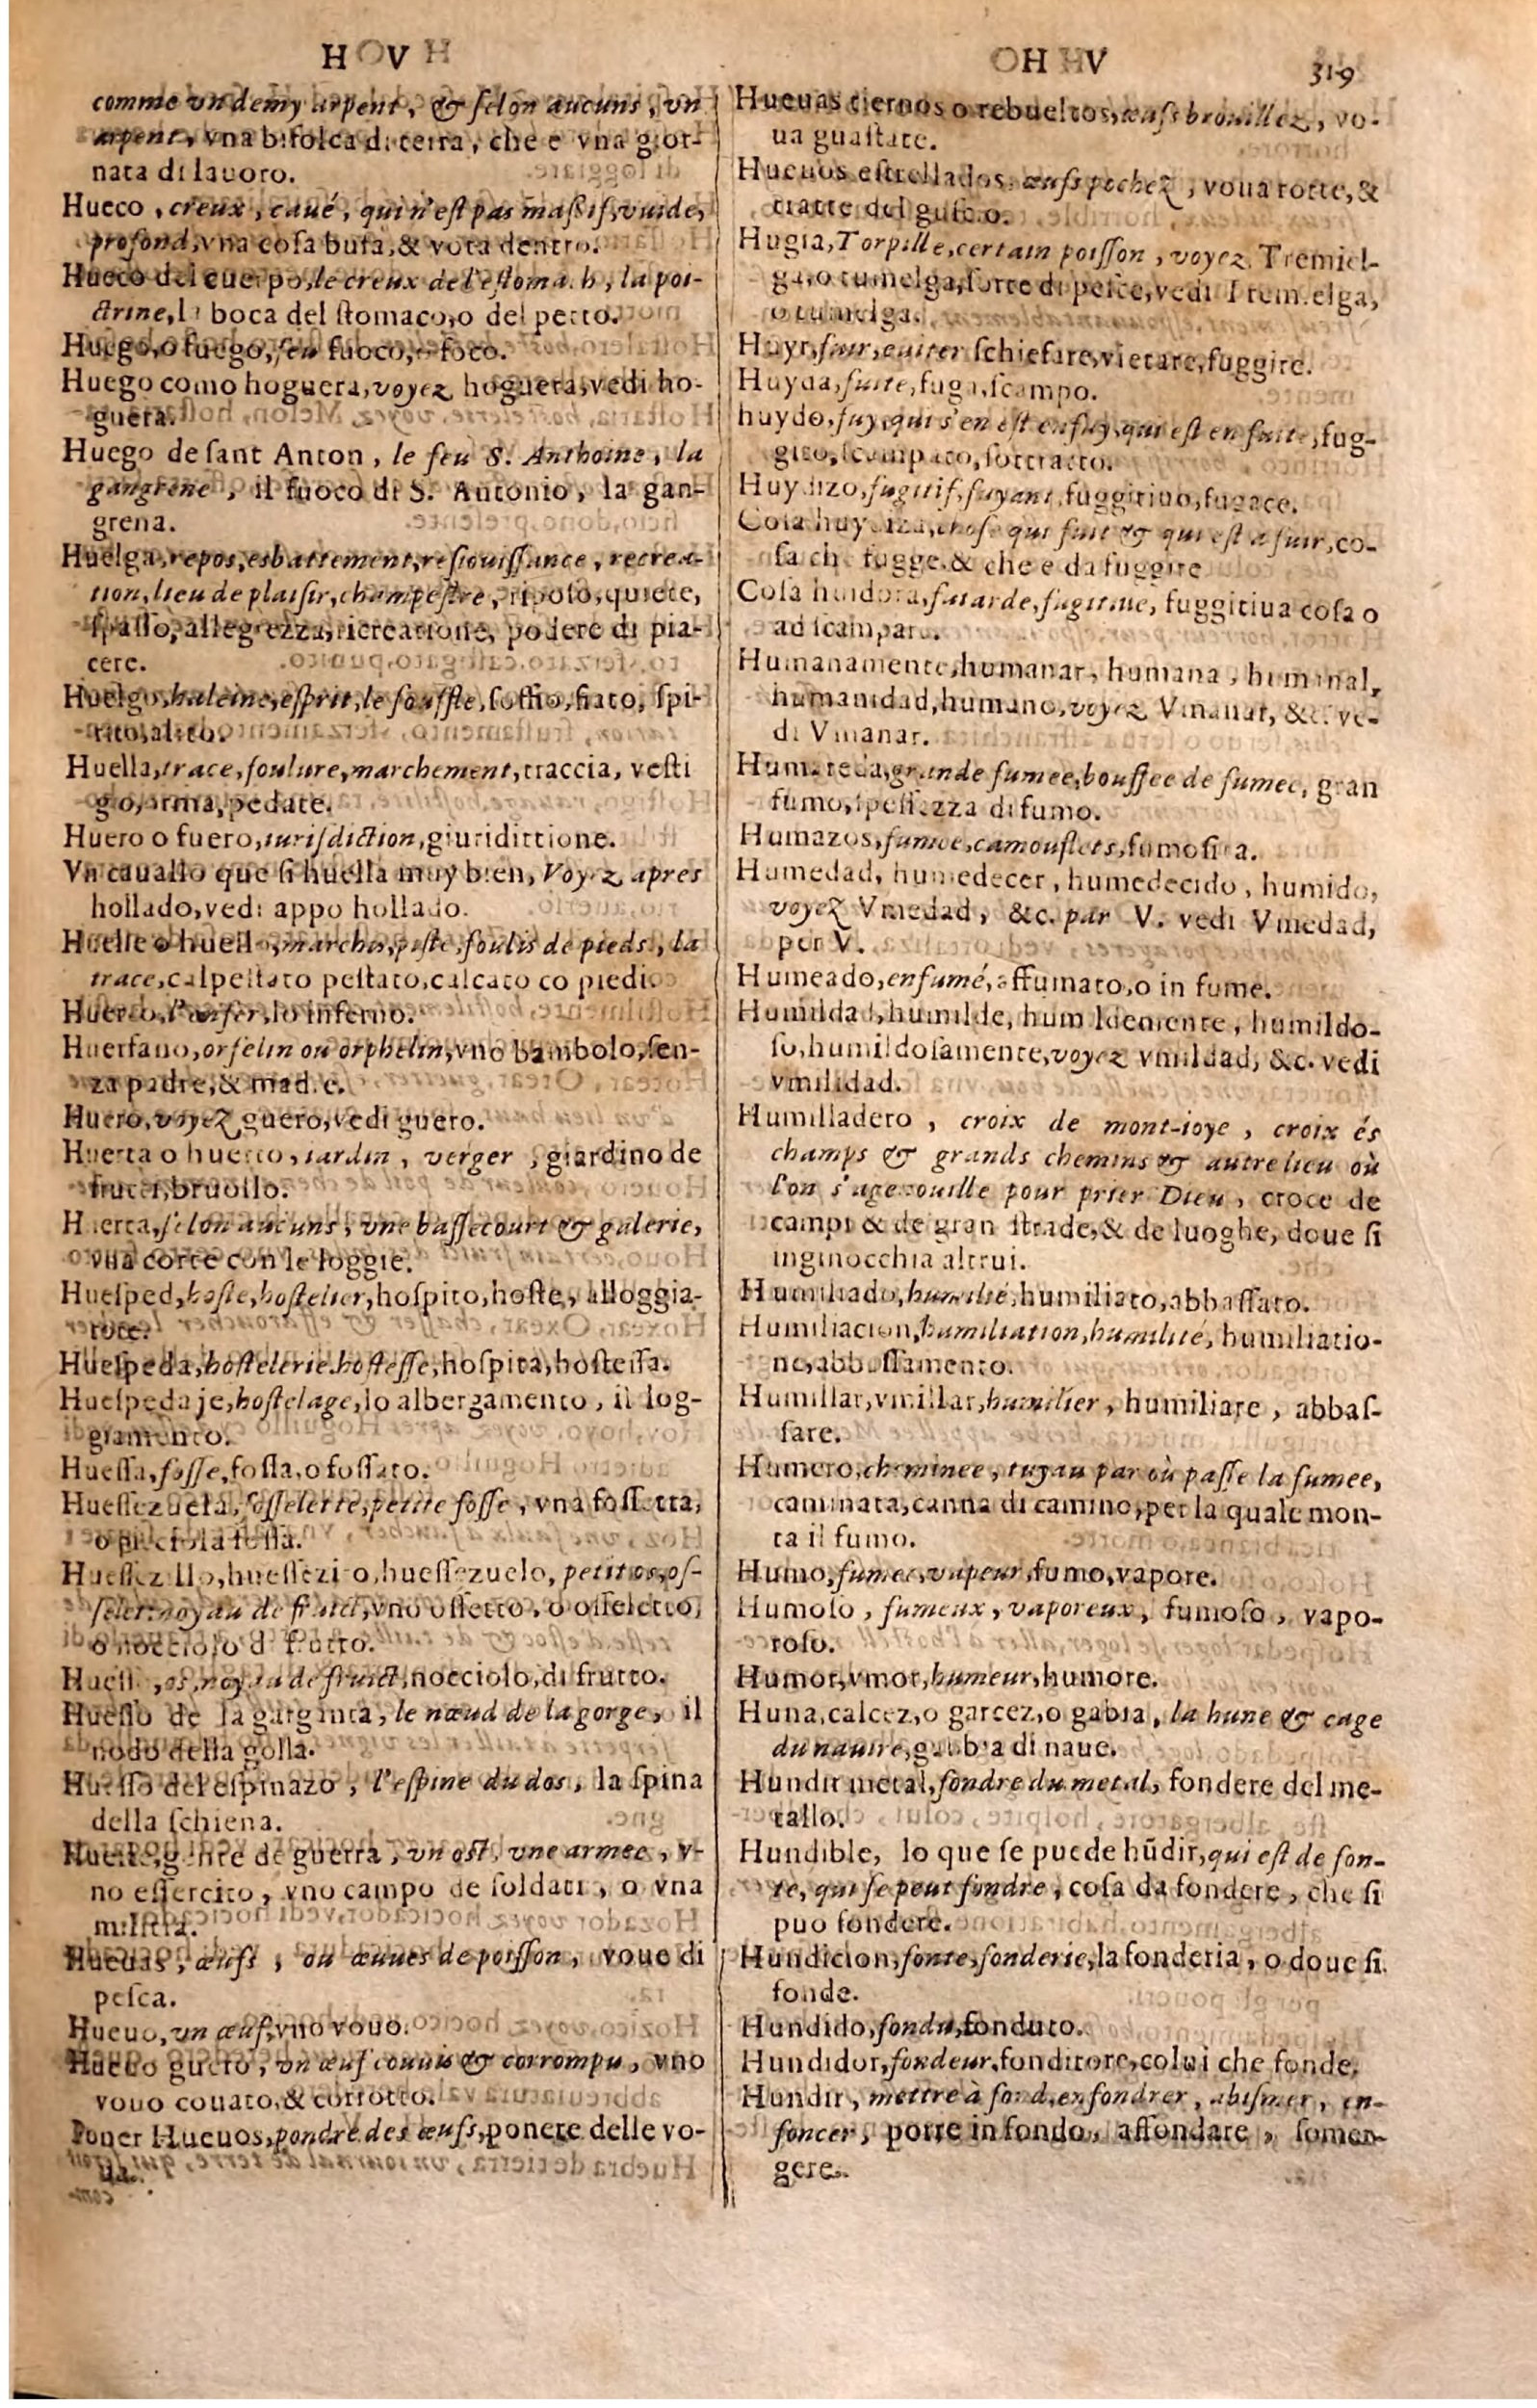 H V
H V 319
comme vn demy arpent, & ſelon aucuns, vn
arpent, vna bifolca di terra, che e vna gior-
nata di lauoro.
Hueco, creux, caué, qui n'eſt pas maſsif, vuide,
profond, vna coſa buſa, & vota dentro.
Hueco del cuerpo, le creux de l'eſtomach, la poi-
ctrine, la boca del ſtomaco, o del petto.
Huego, o fuego, feu fuoco, o foco.
Huego como hoguera, voyez hoguera, vedi ho-
guera.
Huego de ſant Anton, le feu S. Anthoine, la
gangrene, il fuoco di S. Antonio, la gan-
grena.
Huelga, repos, esbattement, reſiouiſſance, recrea-
tion, lieu de plaiſir, champeſtre, ripoſo, quiete,
ſpaſſo, allegrezza, ricreatione, podere di pia-
cere.
Huelgo, haleine, eſprit, le ſouffle, ſoffio, fiato, ſpi-
rito, alito.
Huella, trace, foulure, marchement, traccia, veſti
gio, orma, pedate.
Huero o fuero, iuriſdiction, giuridittione.
Vn cauallo que ſi huella muy bien, Voyez apres
hollado, vedi appo hollado.
Huelle o huello, marché, piſte, foulis de pieds, la
trace, calpeſtato peſtato, calcato co piedi.
Huerco, l'enfer, lo inferno.
Huerfano, orfelin ou orphelin, vno bambolo, ſen-
za padre, & madre.
Huero, voyez guero, vedi guero.
Huerta o huerto, iardin, verger, giardino de
frutti, bruollo.
Huerta, ſelon aucuns, vne baſſecourt & galerie,
vna corte con le loggie.
Hueſped, hoſte, hoſtelier, hoſpito, hoſte, alloggia-
tore.
Hueſpeda, hoſtelerie, hoſteſſe, hoſpita, hoſteſſa.
Hueſpedaje, hoſtelage, lo albergamento, il log-
giamento.
Hueſſa, foſſe, foſſa, o foſſato.
Hueſſezuela, foſſelette, petite foſſe, vna foſſetta,
o picciola foſſa.
Hueſſezillo, hueſſezito, hueſſezuelo, petit os, oſ-
ſelet noyau de fruict, vno oſſetto, o oſſeletto,
o nocciolo di frutto.
Hueſſo, os, noyau de fruict, nocciolo, di frutto.
Hueſſo de la garginta, le nœud de la gorge, il
nodo della golla.
Hueſſo del eſpinazo, l'eſpine du dos, la ſpina
della ſchiena.
Hueſte, gente de guerra, vn oſt, vne armee, v-
no eſſercito, vno campo de ſoldati, o vna
militia.
Hueuas, œufs, ou œuues de poiſſon, voue di
peſca.
Hueuo, vn œuf, vno vouo.
Hueuo guero, vn œuf couuis & corrompu, vno
vouo couato, & corrotto.
Poner Hueuos, pondre des œufs, ponere delle vo-
ua.
Hueuas tiernos o rebueltos, œufs brouillez, vo-
ua guaſtate.
Hueuos eſtrellados, œufs pochez, voua rotte, &
tratte del guſcio.
Hugia, Torpille, certain poiſſon, voyez Tremiel-
ga, o tumelga, ſorte di peſce, vedi Tremielga,
o tumelga.
Huyr, fuir, euiter ſchiefare, vietare, fuggire.
Huyda, fuite, fuga, ſcampo.
huydo, fuy, qui s'en eſt enfuy, qui eſt en fuite, fug-
gito, ſcampato, ſottratto.
Huydizo, fugitif, fuyant, fuggitiuo, fugace.
Coſa huydiza, choſe qui fuit & qui eſt a fuir, co-
ſa che fugge, & che e da fuggire
Coſa huidora, fuiarde, fugitiue, fuggitiua coſa o
ad ſcampare.
Humanamente, humanar, humana, humanal,
humanidad, humano, voyez Vmanar, &c. ve-
di Vmanar.
Humareda, grande fumee, bouffee de fumee, gran
fumo, ſpeſſezza di fumo.
Humazos, fumee, camouflets, fumoſita.
Humedad, humedecer, humedecido, humido,
voyez Vmedad, &c. par V. vedi Vmedad,
per V.
Humeado, enfumé, affumato, o in fume.
Humildad, humilde, humildemente, humildo-
ſo, humildoſamente, voyez vmildad, &c. vedi
vmilidad.
Humilladero, croix de mont-ioye, croix és
champs & grands chemins & autre lieu où
l'on s'agenouille pour prier Dieu, croce de
campi & de gran ſtrade, & de luoghe, doue ſi
inginocchia altrui.
Humiliado, humilié, humiliato, abbaſſato.
Humiliacion, humiliation, humilité, humiliatio-
ne, abbaſſamento.
Humillar, vmillar, humilier, humiliare, abbaſ-
ſare.
Humero, cheminee, tuyau par où paſſe la fumee,
caminata, canna di camino, per la quale mon-
ta il fumo.
Humo, fumee, vapeur, fumo, vapore.
Humoſo, fumeux, vaporeux, fumoſo, vapo-
roſo.
Humor, vmor, humeur, humore.
Huna, calcez, o garcez, o gabia, la hune & cage
du nauire, gabbia di naue.
Hundir metal, fondre du metal, fondere del me-
tallo.
Hundible, lo que ſe puede hũdir, qui eſt de fon-
te, qui ſe peut fondre, coſa da fondere, che ſi
puo fondere.
Hundicion, fonte, fonderie, la fonderia, o doue ſi
fonde.
Hundido, fondu, fonduto.
Hundidor, fondeur, fonditore, colui che fonde.
Hundir, mettre à fond, enfondrer, abiſmer, en-
foncer, porre in fondo, affondare, ſomer-
gere.